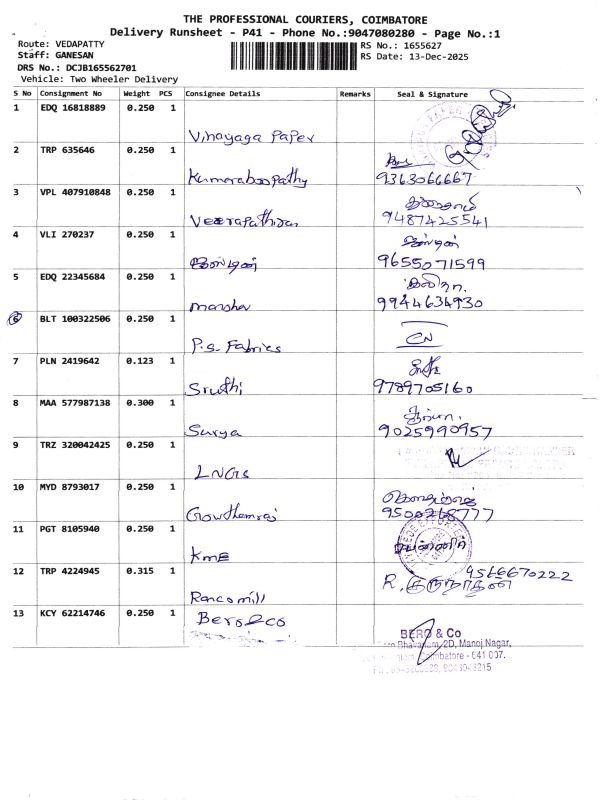 THE PROFESSIONAL COURIERS, COIMBATORE
Delivery Runsheet - P41 - Phone No.:9047080280 - Page No.:1
Route: VEDAPATTY
Staff: GANESAN
DRS No.: DCJB165562701
Vehicle: Two Wheeler Delivery
RS No.: 1655627
RS Date: 13-Dec-2025
S No Consignment No Weight PCS Consignee Details Remarks Seal & Signature
1 EDQ 16818889 0.250 1
Vinayaga Paper
2 TRP 635646 0.250 1
Kumaraboopathy 9363066667
3 VPL 407910848 0.250 1
Veerapathiran 9487425541
4 VLI 270237 0.250 1
9655071599
5 EDQ 22345684 0.250 1
9944634930
6 BLT 100322506 0.250 1
P.S. Fabrics
7 PLN 2419642 0.123 1
Sruthi 9789705160
8 MAA 577987138 0.300 1
Surya 9025990957
9 TRZ 320042425 0.250 1
LNGS
10 MYD 8793017 0.250 1
Gowthamraj 9500268777
11 PGT 8105940 0.250 1
KME
12 TRP 4224945 0.315 1
9566670222
Rancomill
13 KCY 62214746 0.250 1
Bero & co
BERO & Co
2D, Manoj Nagar,
Coimbatore - 641 007.